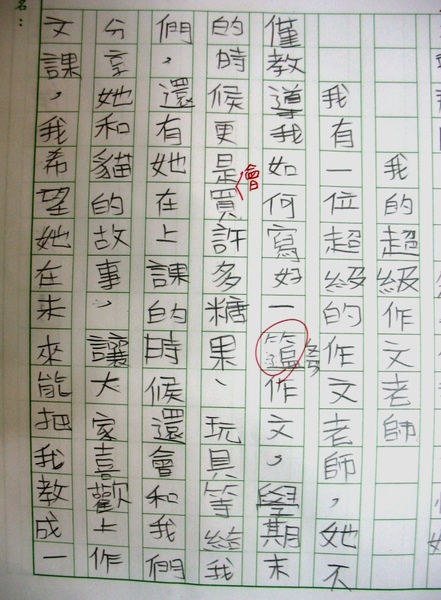 名：
我的超級作文老師
我有一位超級的作文老師，她不
僅教導我如何寫好一篇作文，學期末
的時候更是會買許多糖果、玩具等給我
們，還有她在上課的時候還會和我們
分享，她和貓的故事，讓大家喜歡上作
文課，我希望她在未來能把我教成一